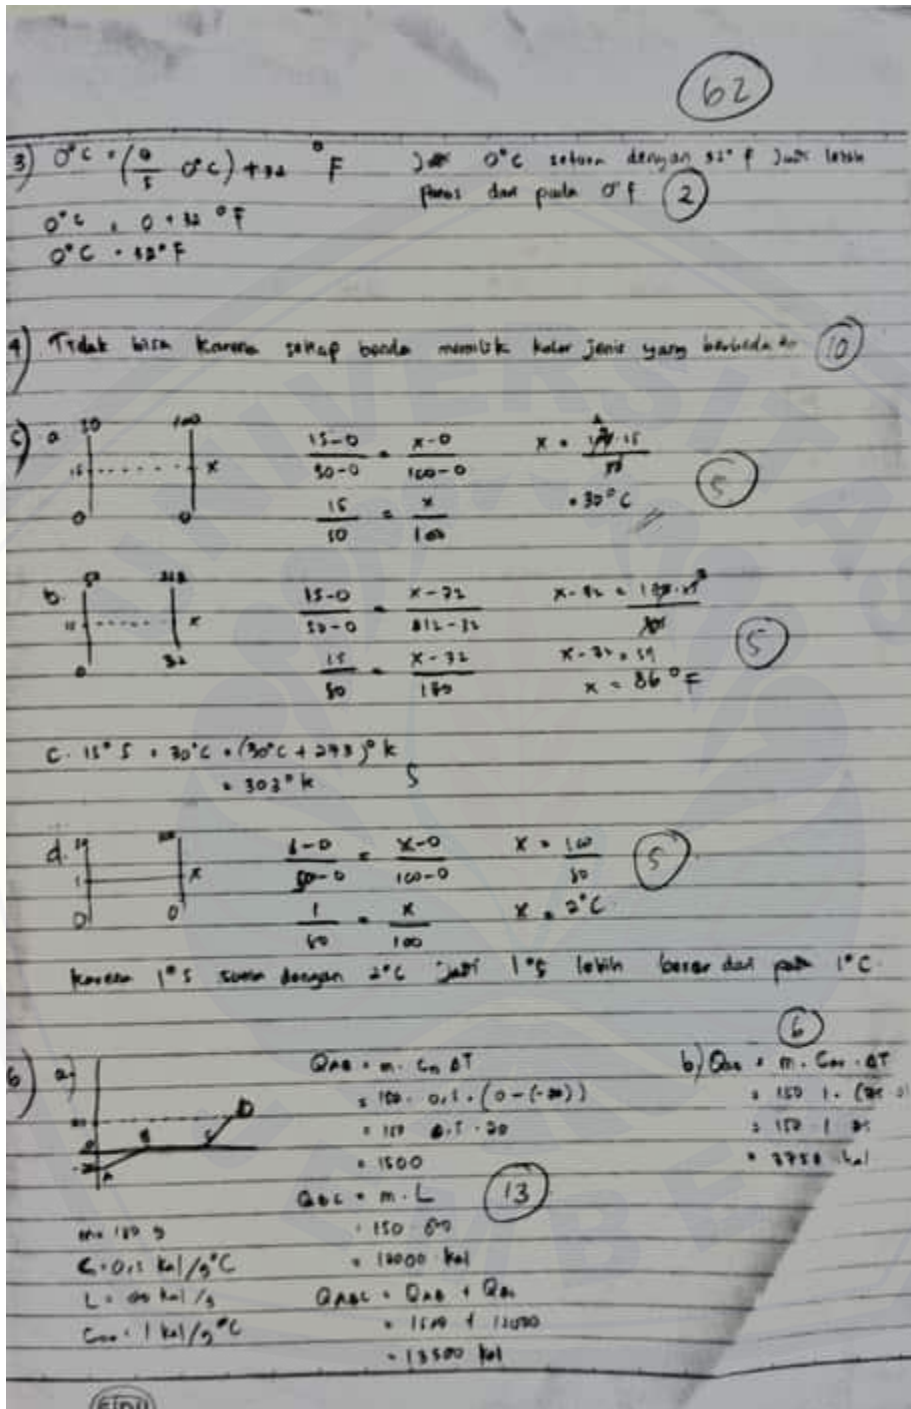 62
3) 0°C = (9/5 0°C) + 32 °F
0°C = 0 + 32 °F
0°C = 32°F
0°C setara dengan 32°F Jadi lebih
panas dari pada 0°F (2)
4) Tidak bisa karena setiap benda memilik kalor jenis yang berbeda (10)
5) a 50 100
15 x
0 0
15-0/50-0 = x-0/100-0
15/50 = x/100
x = 100.15/50
= 30°C
5
b. 50 212
15 x
0 32
15-0/50-0 = x-32/212-32
15/50 = x-32/180
x-32 =
x-32 = 54
x = 86°F
5
C. 15°S = 30°C = (30°C + 273)°k
= 303°k 5
d.
1 x
0 0
1-0/50-0 = x-0/100-0
1/50 = x/100
x = 100/50
x = 2°C
5
Karena 1°S sama dengan 2°C jadi 1°S lebih besar dari pada 1°C.
6) a)
A B C D
m = 150 g
C = 0,5 kal/g°C
L = 80 kal/g
= 1 kal/g°C
QAB = m. Cn ΔT
= 150. 0,5. (0-(-20))
= 150 0.5 . 20
= 1500
QBC = m. L (13)
= 150 80
= 12000 kal
QABC = QAB + QBC
= 1500 + 12000
= 13500 kal
6
b) = m. . ΔT
= 150 1. (25
= 150 1 25
= 3750 kal